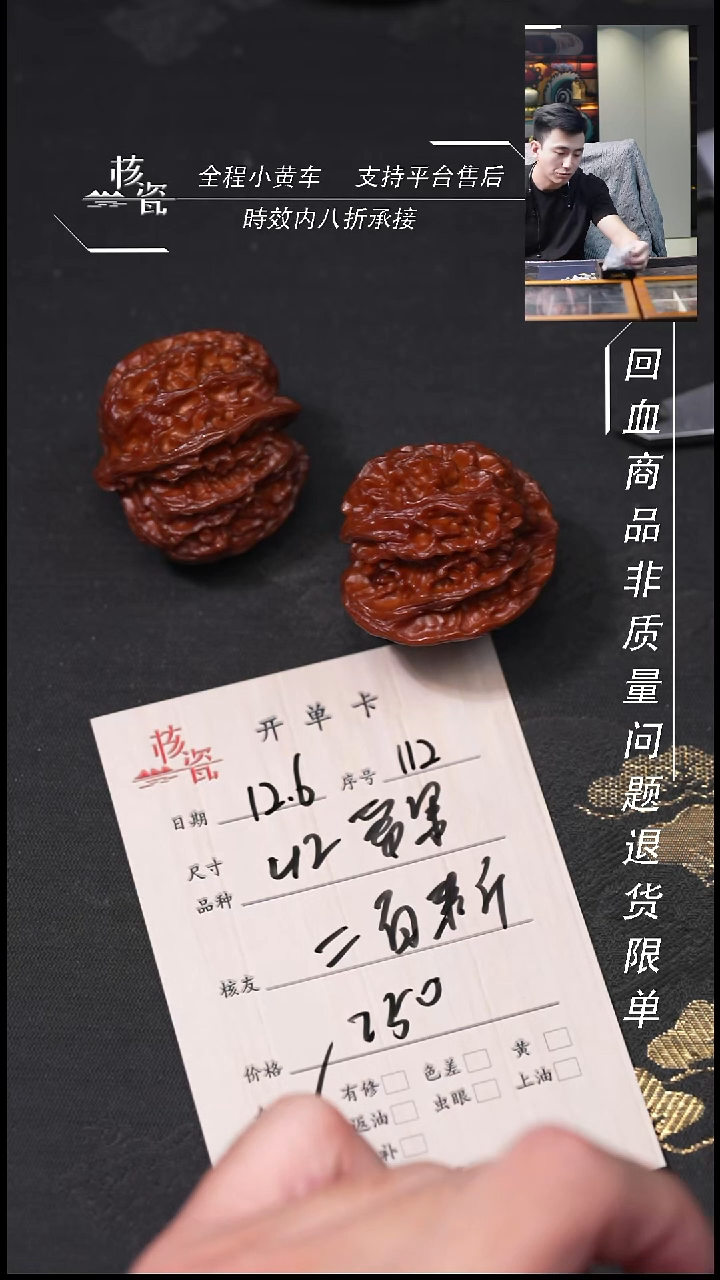 核瓷
全程小黄车 支持平台售后
時效内八折承接
回血商品非质量问题退货限单
核瓷
开单卡
日期 12.6 序号 112
尺寸 42
品种
二百来斤
核友
250
价格
有修 色差 黄
返油 虫眼 上油
补